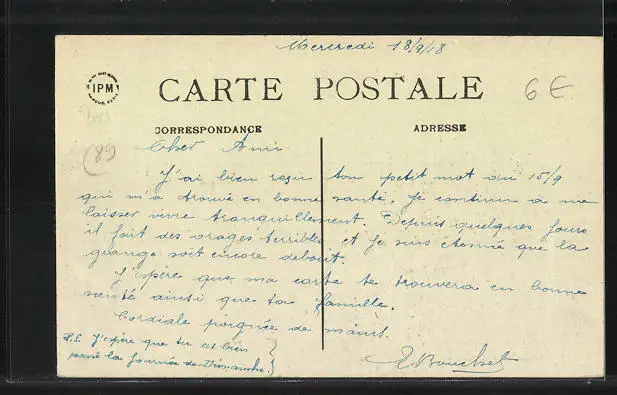 Mercredi 18/9/18
IPM
CARTE POSTALE
6 €
CORRESPONDANCE
ADRESSE
(89
Cher Ami
J'ai bien reçu ton petit mot du 15/9
qui m'a trouvé en bonne santé. Je continu a me
laisser vivre tranquillement. Depuis quelques jours
il fait des orages terribles et je suis étonné que la
grange soit encore debout.
J'espère que ma carte te trouvera en bonne
santé ainsi que ta famille.
Cordiale poignée de mains.
P.S. J'espère que tu as bien
passé la journée de Dimanche.
E. Bouchet